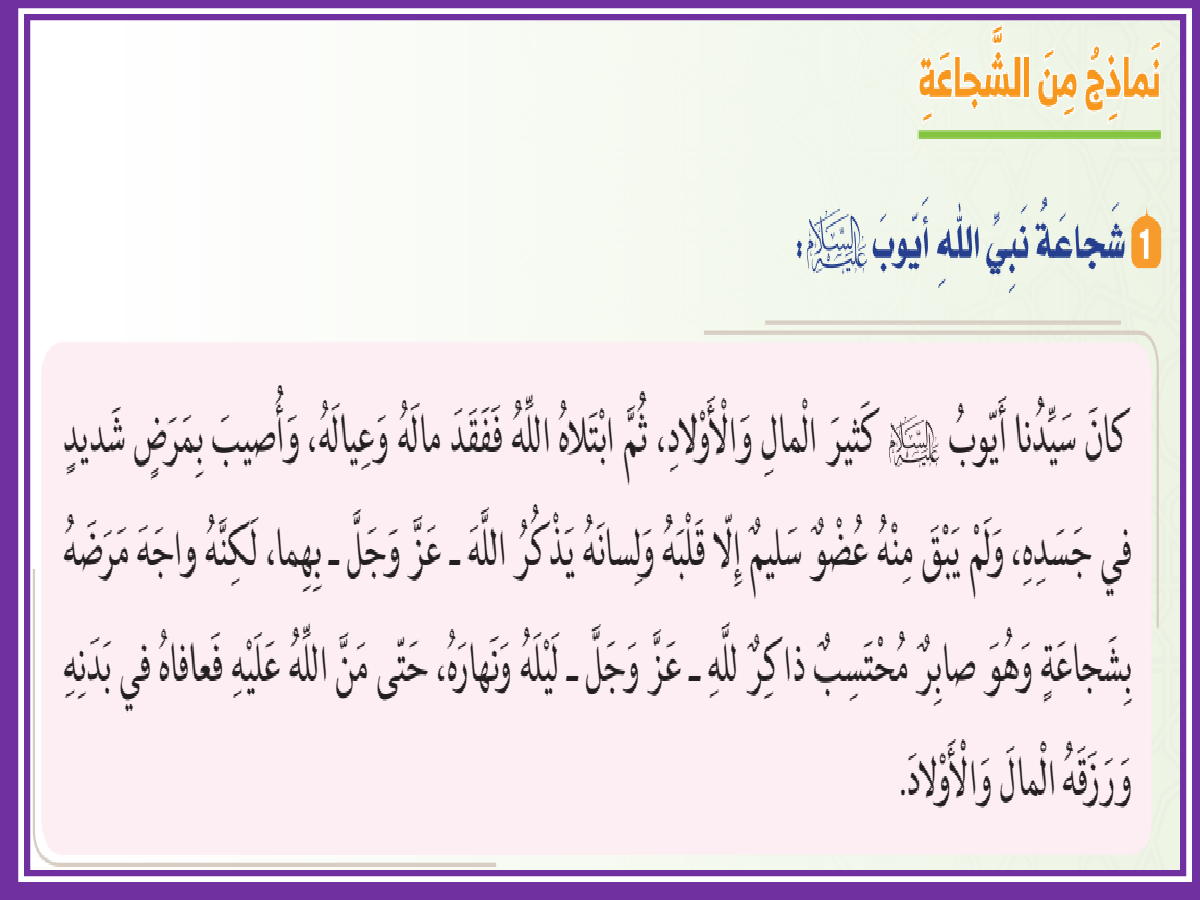 نَماذِجُ مِنَ الشَّجاعَةِ
1 شَجاعَةُ نَبِيِّ اللهِ أَيّوبَ عليه السلام :
كانَ سَيِّدُنا أَيّوبُ عليه السلام كَثيرَ الْمالِ وَالْأَوْلادِ، ثُمَّ ابْتَلاهُ اللَّهُ فَفَقَدَ مالَهُ وَعِيالَهُ، وَأُصيبَ بِمَرَضٍ شَديدٍ
في جَسَدِهِ، وَلَمْ يَبْقَ مِنْهُ عُضْوٌ سَليمٌ إِلّا قَلْبَهُ وَلِسانَهُ يَذْكُرُ اللَّهَ ـ عَزَّ وَجَلَّ ـ بِهِما، لَكِنَّهُ واجَهَ مَرَضَهُ
بِشَجاعَةٍ وَهُوَ صابِرٌ مُحْتَسِبٌ ذاكِرٌ للَّهِ ـ عَزَّ وَجَلَّ ـ لَيْلَهُ وَنَهارَهُ، حَتّى مَنَّ اللَّهُ عَلَيْهِ فَعافاهُ في بَدَنِهِ
وَرَزَقَهُ الْمالَ وَالْأَوْلادَ.